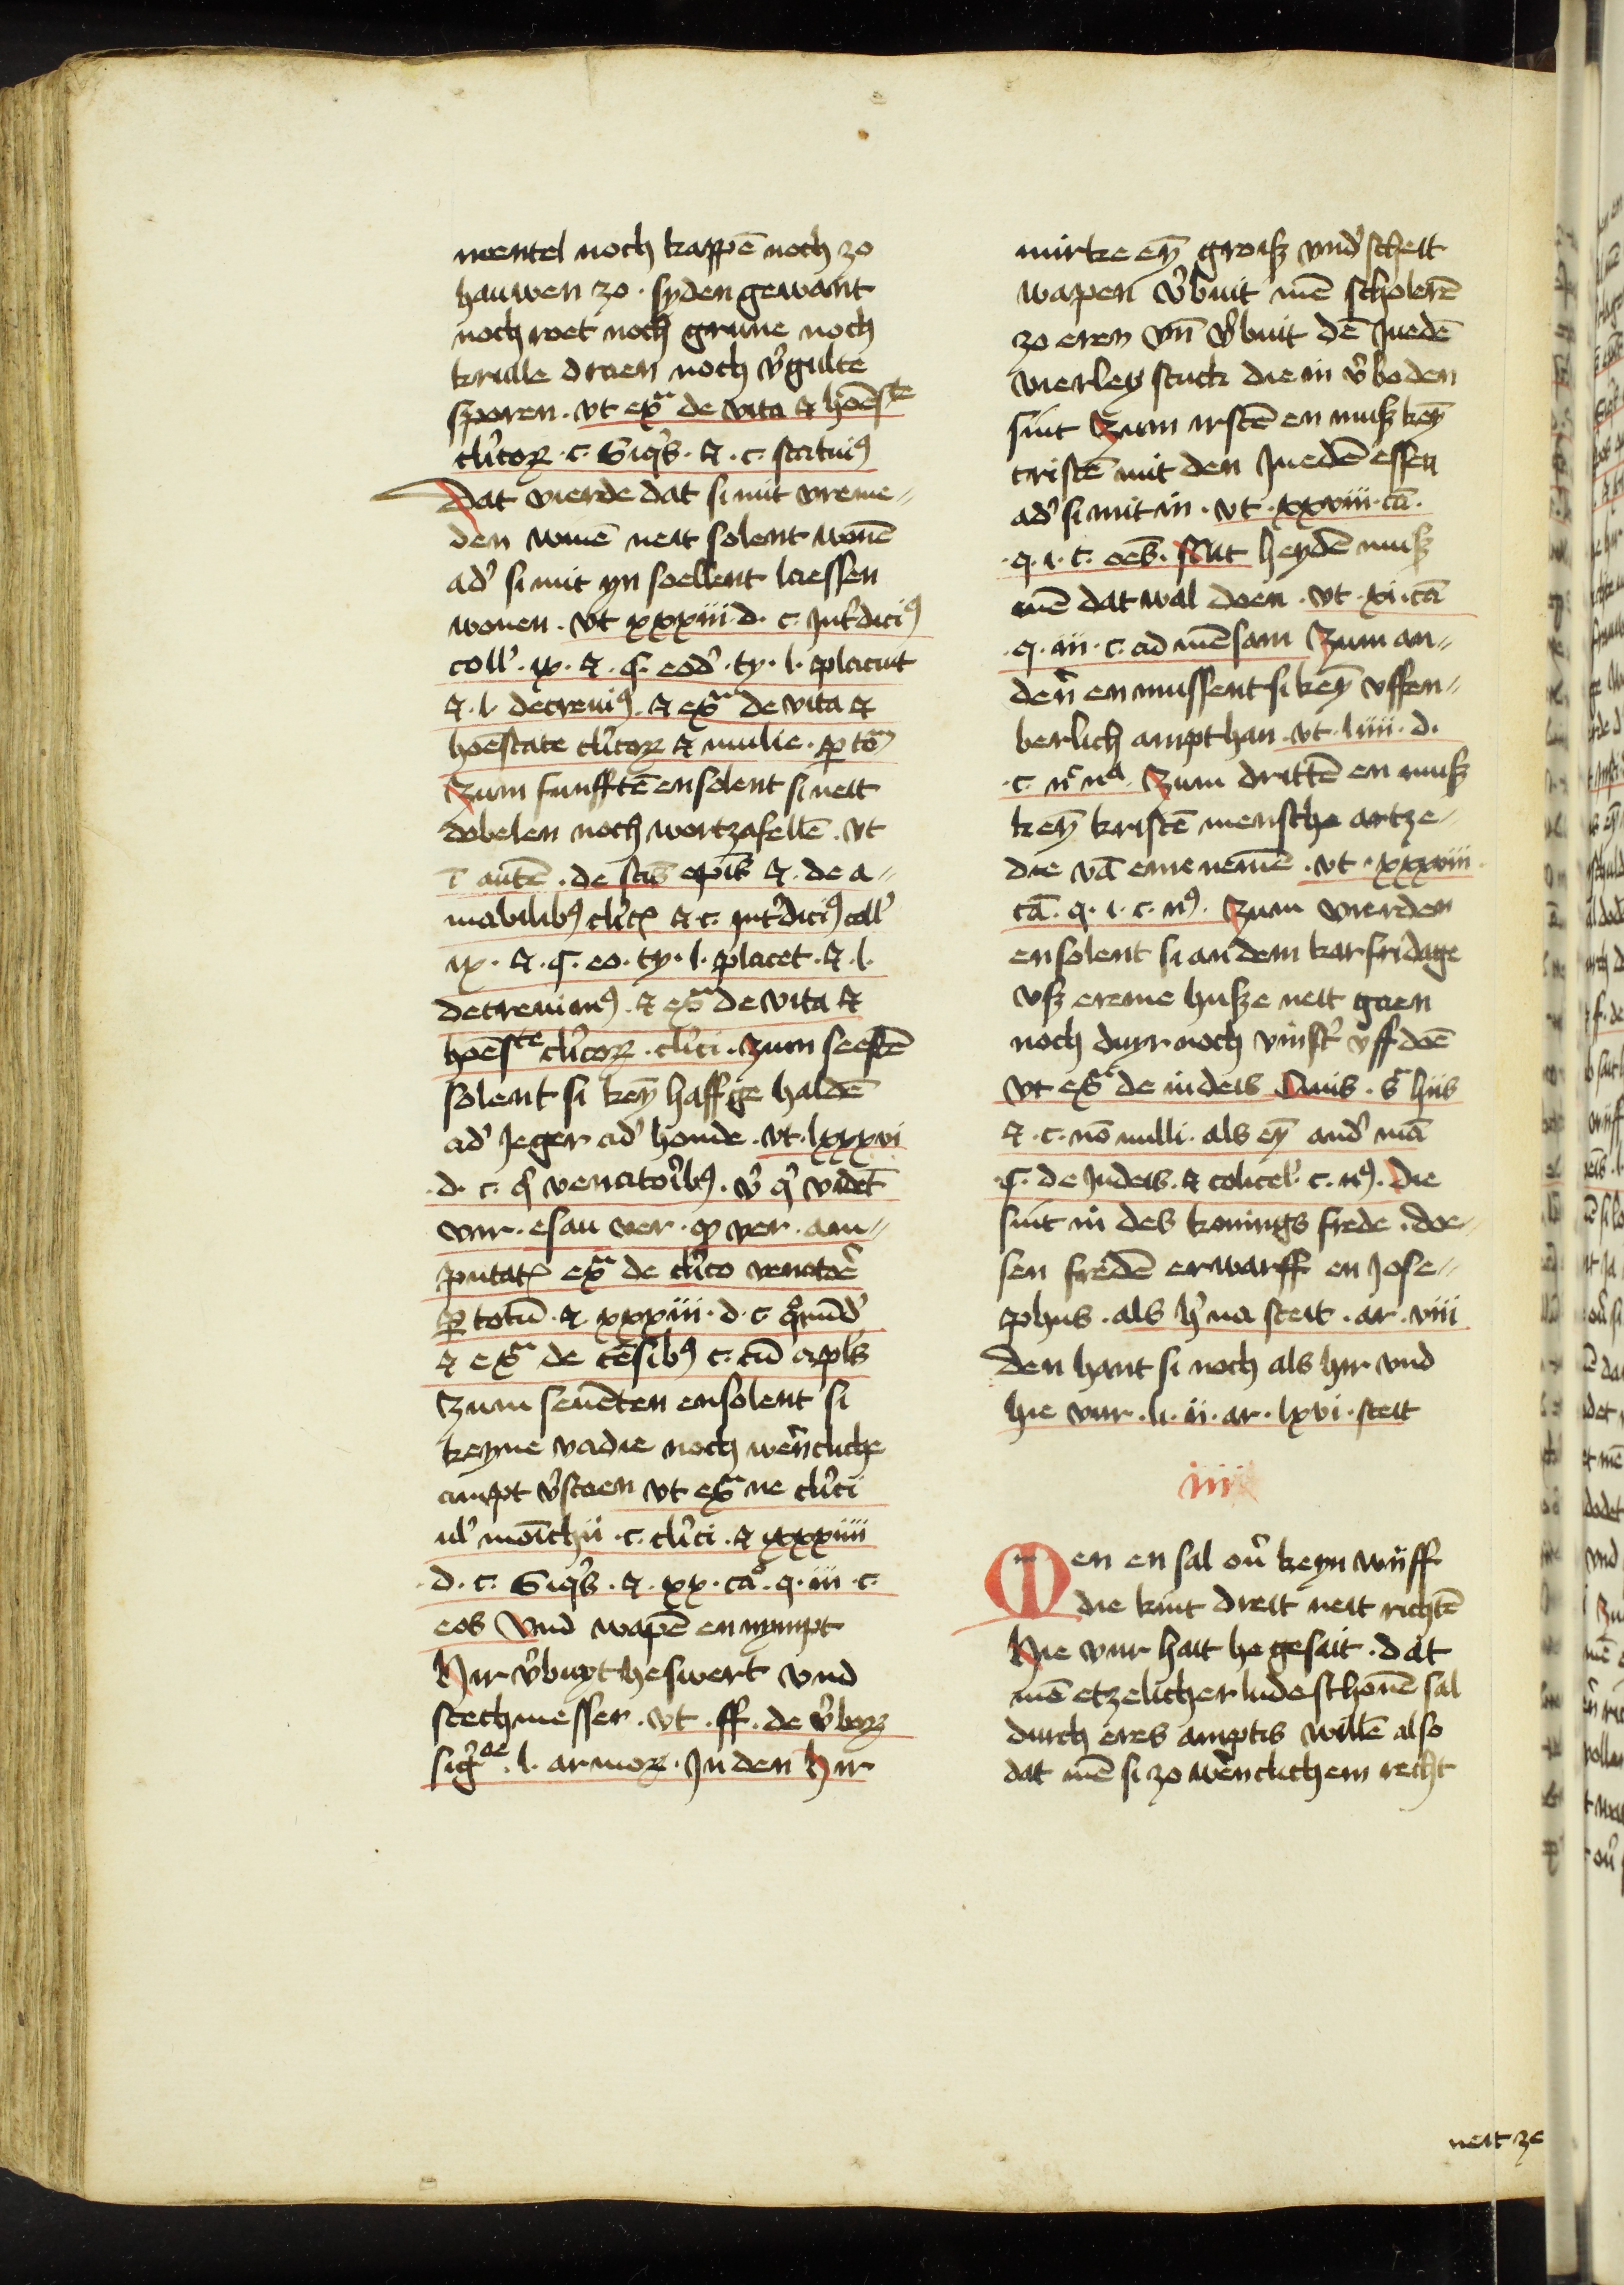 mentel noch kappē noch zo
hauwen zo · syden gewant
noch roet noch grune noch
krulle draen noch v̓gulte
sporen · vt ex̄ᵃ de vita ⁊ hōeste
cl̓icoꝝ · c · Siq̓s · ⁊ · c · statuiꝰ
Dat vierde dat si mit vreme⸗
den wiuē neit solent wonē
ad̓ si mit yn soellent laessen
wonen · vt xxxiii · d · c · Int̓diciꝰ
coll̓ · ix · ⁊ · C · eod̓ · ty · l · placuit
⁊ · l · decreuiꝰ · ⁊ ex̄ᵃ de vita ⁊
hōestate cl̓icoꝝ ⁊ mulie · ꝑ tō
Zum funfftē ensolent si neit
dobelen noch wortzafellē · vt
ī autē · de scīs ep̄is ⁊ · de a⸗
mabilibꝰ cl̓ic̄ ⁊ c · int̓diciꝰ coll̓
ix · ⁊ · C · eo · ty · l · placet · ⁊ · l ·
decreuimꝰ · ⁊ ex̄ᵃ de vita ⁊
hōeste cl̓icoꝝ · cl̓ici · Zum seestē
solent si keȳ haffge haldē
ad̓ Jeger ad̓ honde · vt · lxxxvi
· d · c · q̓ venatorib̓ꝰ · v̓ q̓ videt̄
vnr · esau ver · ꝙ ver · am⸗
putat̄ ex̄ᵃ de cl̓ico venatoē
ꝑ totū · ⁊ xxxiii · d · c · quorūd̓
⁊ ex̄ᵃ de cēsibꝰ c · cū ap̄ls
Zum seuēten ensolent si
keyne vadie noch wērtliche
ampt v̓stoen vt ex̄ᵃ ne cl̓ici
ul̓ moīchii · c · cl̓ici · ⁊ lxxxiiii
· d · c · Siq̓s · ⁊ · xx · cā · q · iii · c ·
eos Vnd wapē en nympt
Hir v̓buyt he swert vnd
stechmesser · vt · ff · de v̓boꝝ
sig̓ᵈᵉ · l · armoꝝ · In den hir
mirke eȳ groisz vnd̓scheit
wapen v̓buit mē scholerē
zo eren vn̄ v̓buit dē Juedē
vierley stuck die in v̓boden
sint Zum irstē en musz keȳ
cristē mit den Juedē essen
ad̓ si mit in · vt · xxviii · cā ·
· q · i · c · oēs · Mit heydē musz
mē dat wal doen · vt · xi · cā
· q · iii · c · ad mēsam Zum an⸗
den̄ en mussent si keȳ vffen⸗
berlich ampt han · vt · liiii · d ·
· c · Zum drittē en musz
keȳ kristē mensche artze⸗
die vā eme nemē · vt · xxxviii
cā · q · i · c · nꝰ · Zum vierden
ensolent si an dem karfridage
vsz ereme husze neit gaen
noch duyr noch vinst̓ vff doē
vt ex̄ᵃ de iudeis Quis · s̄ hiis
⁊ · c · nō nulli · als eȳ and̓ mā
· C · de Judeis · ⁊ colicel̓ · c · nꝰ · Die
sint in des konings frede · doe⸗
sen fredē erwarff en Jose⸗
phus · als h̓ na steit · ar · viii
den hant si noch als hir vnd
hie vur · li · ii · ar · lxvi · steit
iiii
Men en sal ou̓ keyn wiiff
die kint dreit neit richtē
Hie vur hait he gesait · dat
mē etzelicher lude schonē sal
durch eres amptis willē also
dat mē si zo wērtlichem recht
neit ze